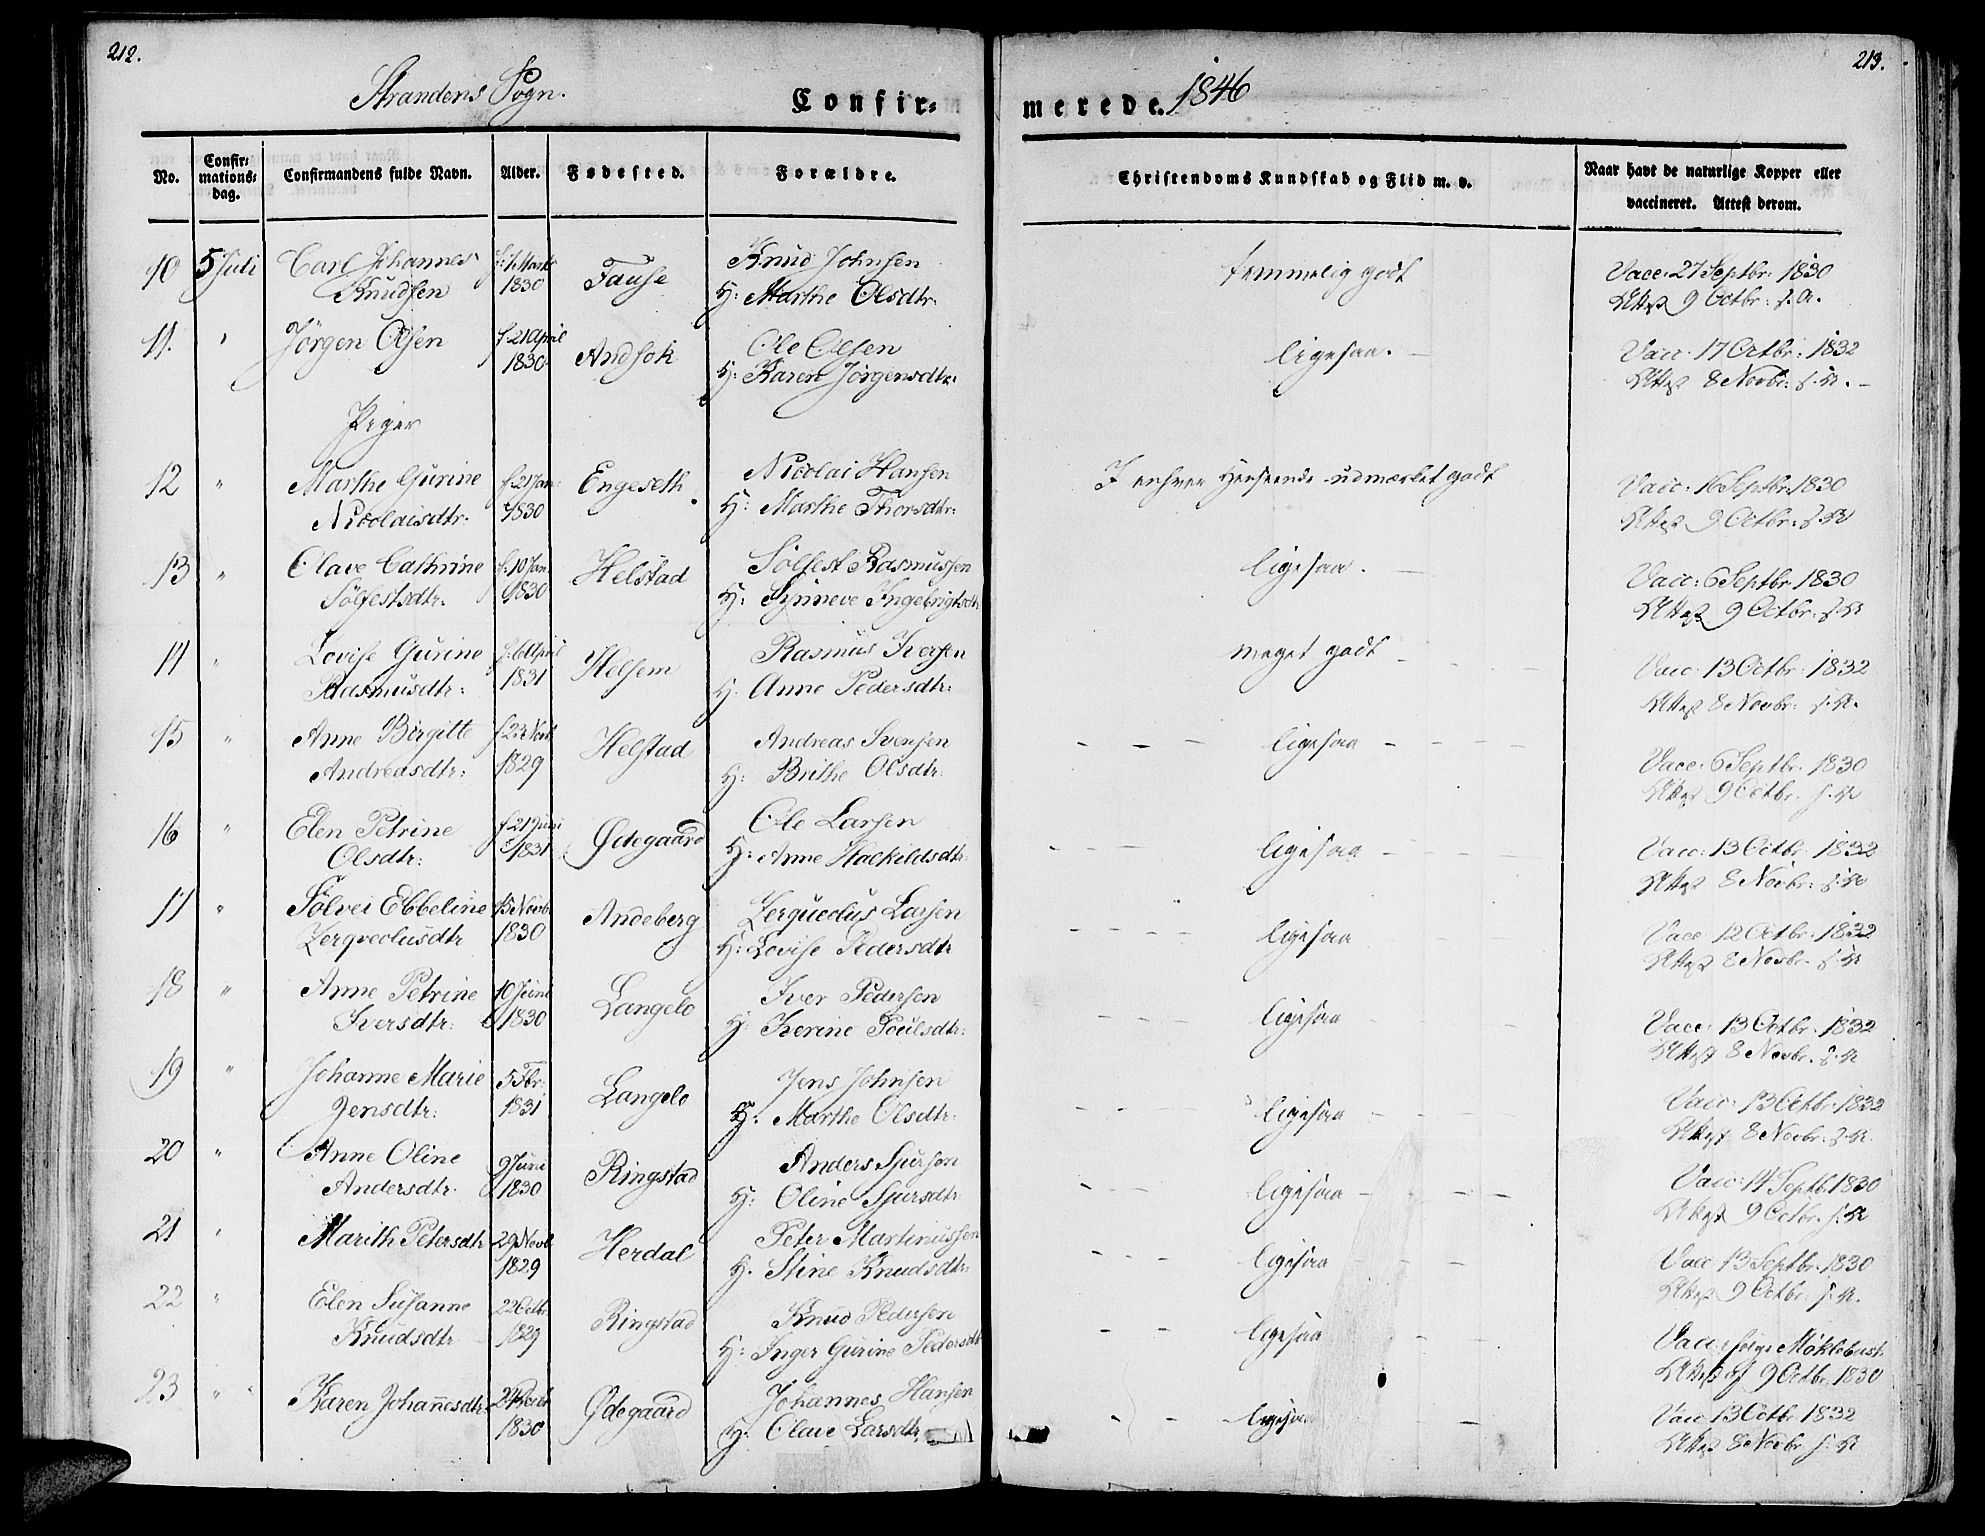 212.
Strandens Sogn.
Confir=
No.
Confir=
mations=
dag.
Confirmandens fulde Navn.
Alder.
Fødested.
Forældre.
10 5 Juli Carl Johannes f: 1 Marts Fause Knud Johnsen
Knudsen 1830 H: Marthe Olsdtr:
11. " Jörgen Olsen f 21 April Andsok Ole Olsen
1830 H: Karen Jörgensdtr:
Piger
12 " Marthe Gurine f. 21 Jan: Engeseth Nicolai Hansen
Nicolaisdtr. 1830 H: Marthe Thorsdtr:
13 " Olave Cathrine f. 10 Jan. Helstad Sölfest Rasmussen
Sölfestsdtr. 1830 H: Synneve Ingebrigtsdtr
14 " Lovise Gurine f. 6 April Helsem Rasmus Iversen
Rasmusdtr: 1831 H: Anne Pedersdtr:
15 " Anne Birgitte f 23 Novb Helstad Andreas Svensen
Andreasdtr: 1829 H: Brithe Olsdtr:
16 " Elen Petrine f 21 Juni Ødegaard Ole Larsen
Olsdtr: 1831 H: Anne Hackildsdtr:
17 " Sölvei Ebbeline 15 Novbr Andeberg Zerqueolus Larsen
Zerqveolusdtr 1830 H: Lovise Pedersdtr
18 " Anne Petrine 10 Juni Langelo Iver Pedersen
Iversdtr: 1830 H: Iverine Poulsdtr:
19 " Johanne Marie 5 Fbr: Langelo Jens Johnsen
Jensdtr: 1831 H: Marthe Olsdtr:
20 " Anne Oline 9 Juni Ringstad Anders Sjursen
Andersdtr. 1830 H: Oline Sjursdtr
21 " Marith Petersdtr 29 Novb Herdal Peter Martinussen
1829 H. Stine Knudsdtr:
22 " Elen Susanne 22 Octbr Ringstad Knud Pedersen
Knudsdtr 1829 H: Inger Gurine Pedersdtr
23 " " Karen Johañesdtr Ødegaard Johannes Hansen
1830 H: Olave Larsdtr
213.
merede. 1846
Christendoms Kundskab og Flid m. v.
Naar havt de naturlige Kopper eller
vaccineret. Attest derom.
temmelig godt Vacc: 27 Septbr: 1830
Attest 9 Octbr: s. A.
ligesaa. Vacc. 17 Octbr: 1832
Attest 8 Novbr: s. A.
I enhver Henseende udmærket godt Vacc: 16 Septbr: 1830
Attest 9 Octbr: s. A
ligesaa. Vacc: 6 Septbr 1830
Attest 9 Octbr: s. A
meget godt Vacc: 13 Octbr: 1832
Attest 8 Novbr: s. A.
ligesaa Vacc: 6 Septbr. 1830
Attest 9 Octbr. s. A
ligesaa Vacc: 13 Octbr: 1832
Attest 8 Novbr: s. A
ligesaa Vacc 12 Octbr. 1832
Attest 8 Novbr. s. A
ligesaa Vacc 13 Octbr. 1832
Attest 8 Novbr. s. A
ligesaa Vacc: 13 Octbr: 1832
Attest 8 Novbr. s. A.
ligesaa Vacc: 14 Septb. 1830
Attest 9 Octbr. s. A
ligesaa Vacc 13 Septbr. 1830
Attest 9 Octbr. s. A.
ligesaa Vacc: Möklebust
Attest af 9 Octbr. 1830
ligesaa Vacc 13 Octbr 1832
Attest 8 Novbr s. A